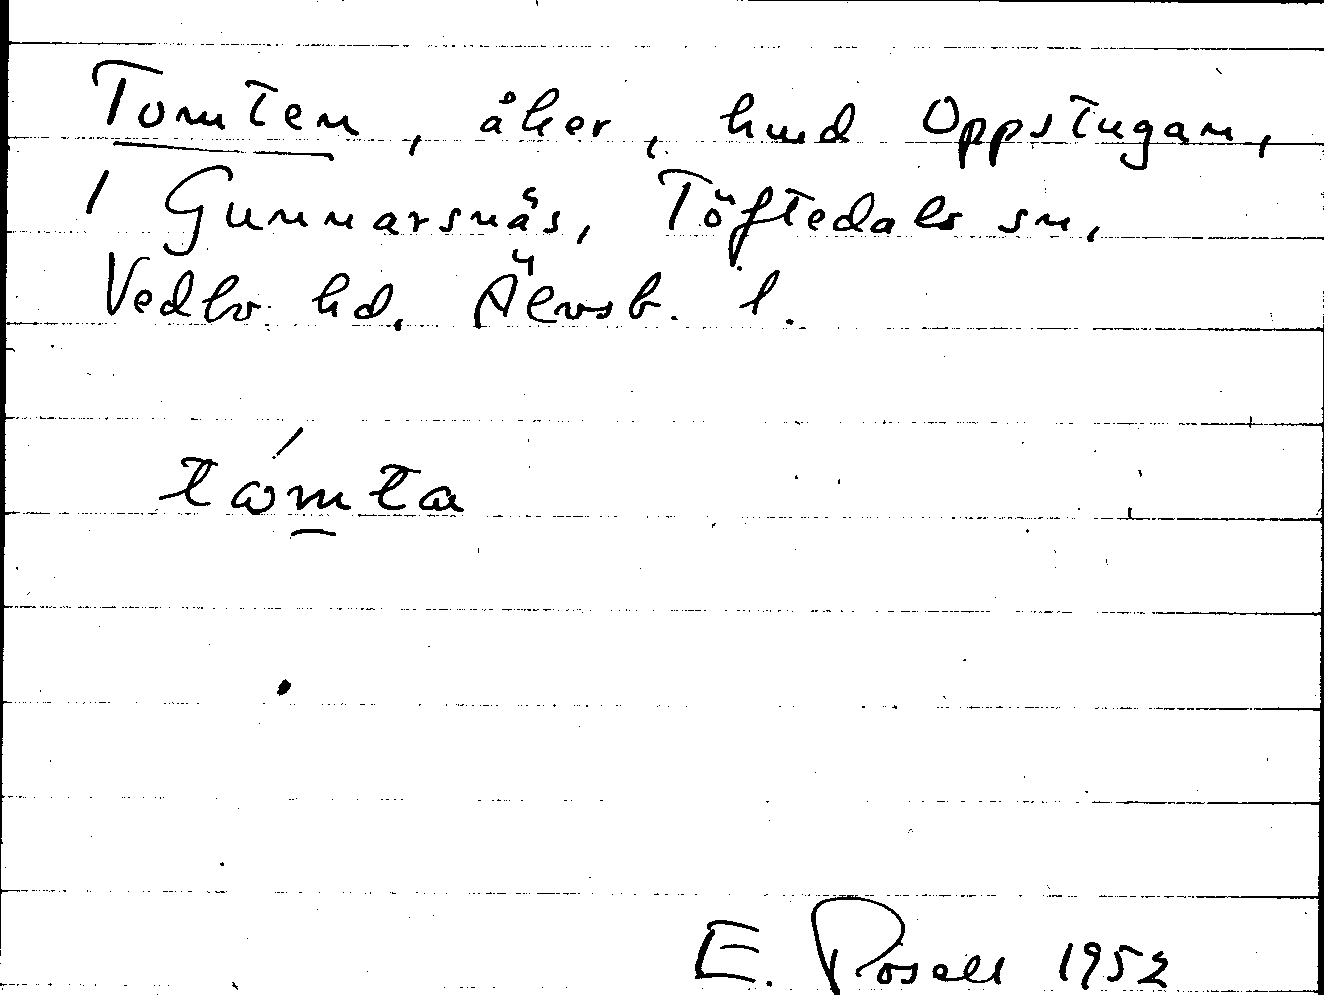 Tomten, åker, hmd Oppstugan,
1 Gunnarsnäs, Töftedals sn,
Vedbo hd, Älvsb. l.
tómta
E. Rosell 1952